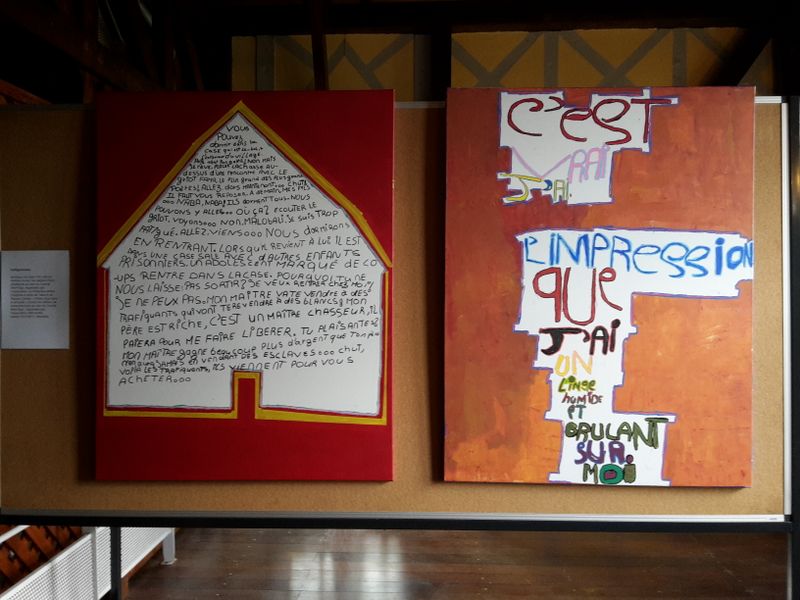 VOUS
POUVEZ
dormir dans la
case qui est la-bas
POÈTES, ALLEZ dors maintenant... chut,
IL FAUT VOUS REPOSER. A demain, mes fils
... NABA, NABA, ILS dorment TOUS. NOUS
POUVONS y ALLER... OÙ ÇA? ECOUTER LE
griot, voyons... NON, MALOBALI. Je SUIS TROP
FATIGUÉ. ALLEZ, VIENS... NOUS DORMIRONS
EN RENTRANT. LORSQU'IL REVIENT À LUI IL EST
DANS UNE CASE SALE AVEC d'AUTRES ENFANTS
PRISONNIERS. UN ADOLESCENT MARQUÉ DE CO
UPS RENTRE DANS LA CASE. POURQUOI TU NE
NOUS LAISSE PAS SORTIR? Je VEUX RENTRER CHEZ MOI!
JE NE PEUX PAS. MON MAÎTRE VA TE VENDRE À DES
TRAFIQUANTS QUI VONT TE REVENDRE À DES BLANCS. MON
PÈRE EST RICHE, C'EST UN MAÎTRE CHASSEUR, IL
PAIERA POUR ME FAIRE LIBERER. TU PLAISANTES!
MON MAÎTRE gagne beaucoup PLUS d'argent que TON père
en VENDANT DES ESCLAVES... CHUT,
VOILÀ LES TRAFIQUANTS, ILS VIENNENT POUR VOUS
ACHETER...
C'EST
VRAI
J'AI
L'IMPRESSION
QUE
J'AI
UN
Linge
humide
ET
BRULANT
SUR
MOI